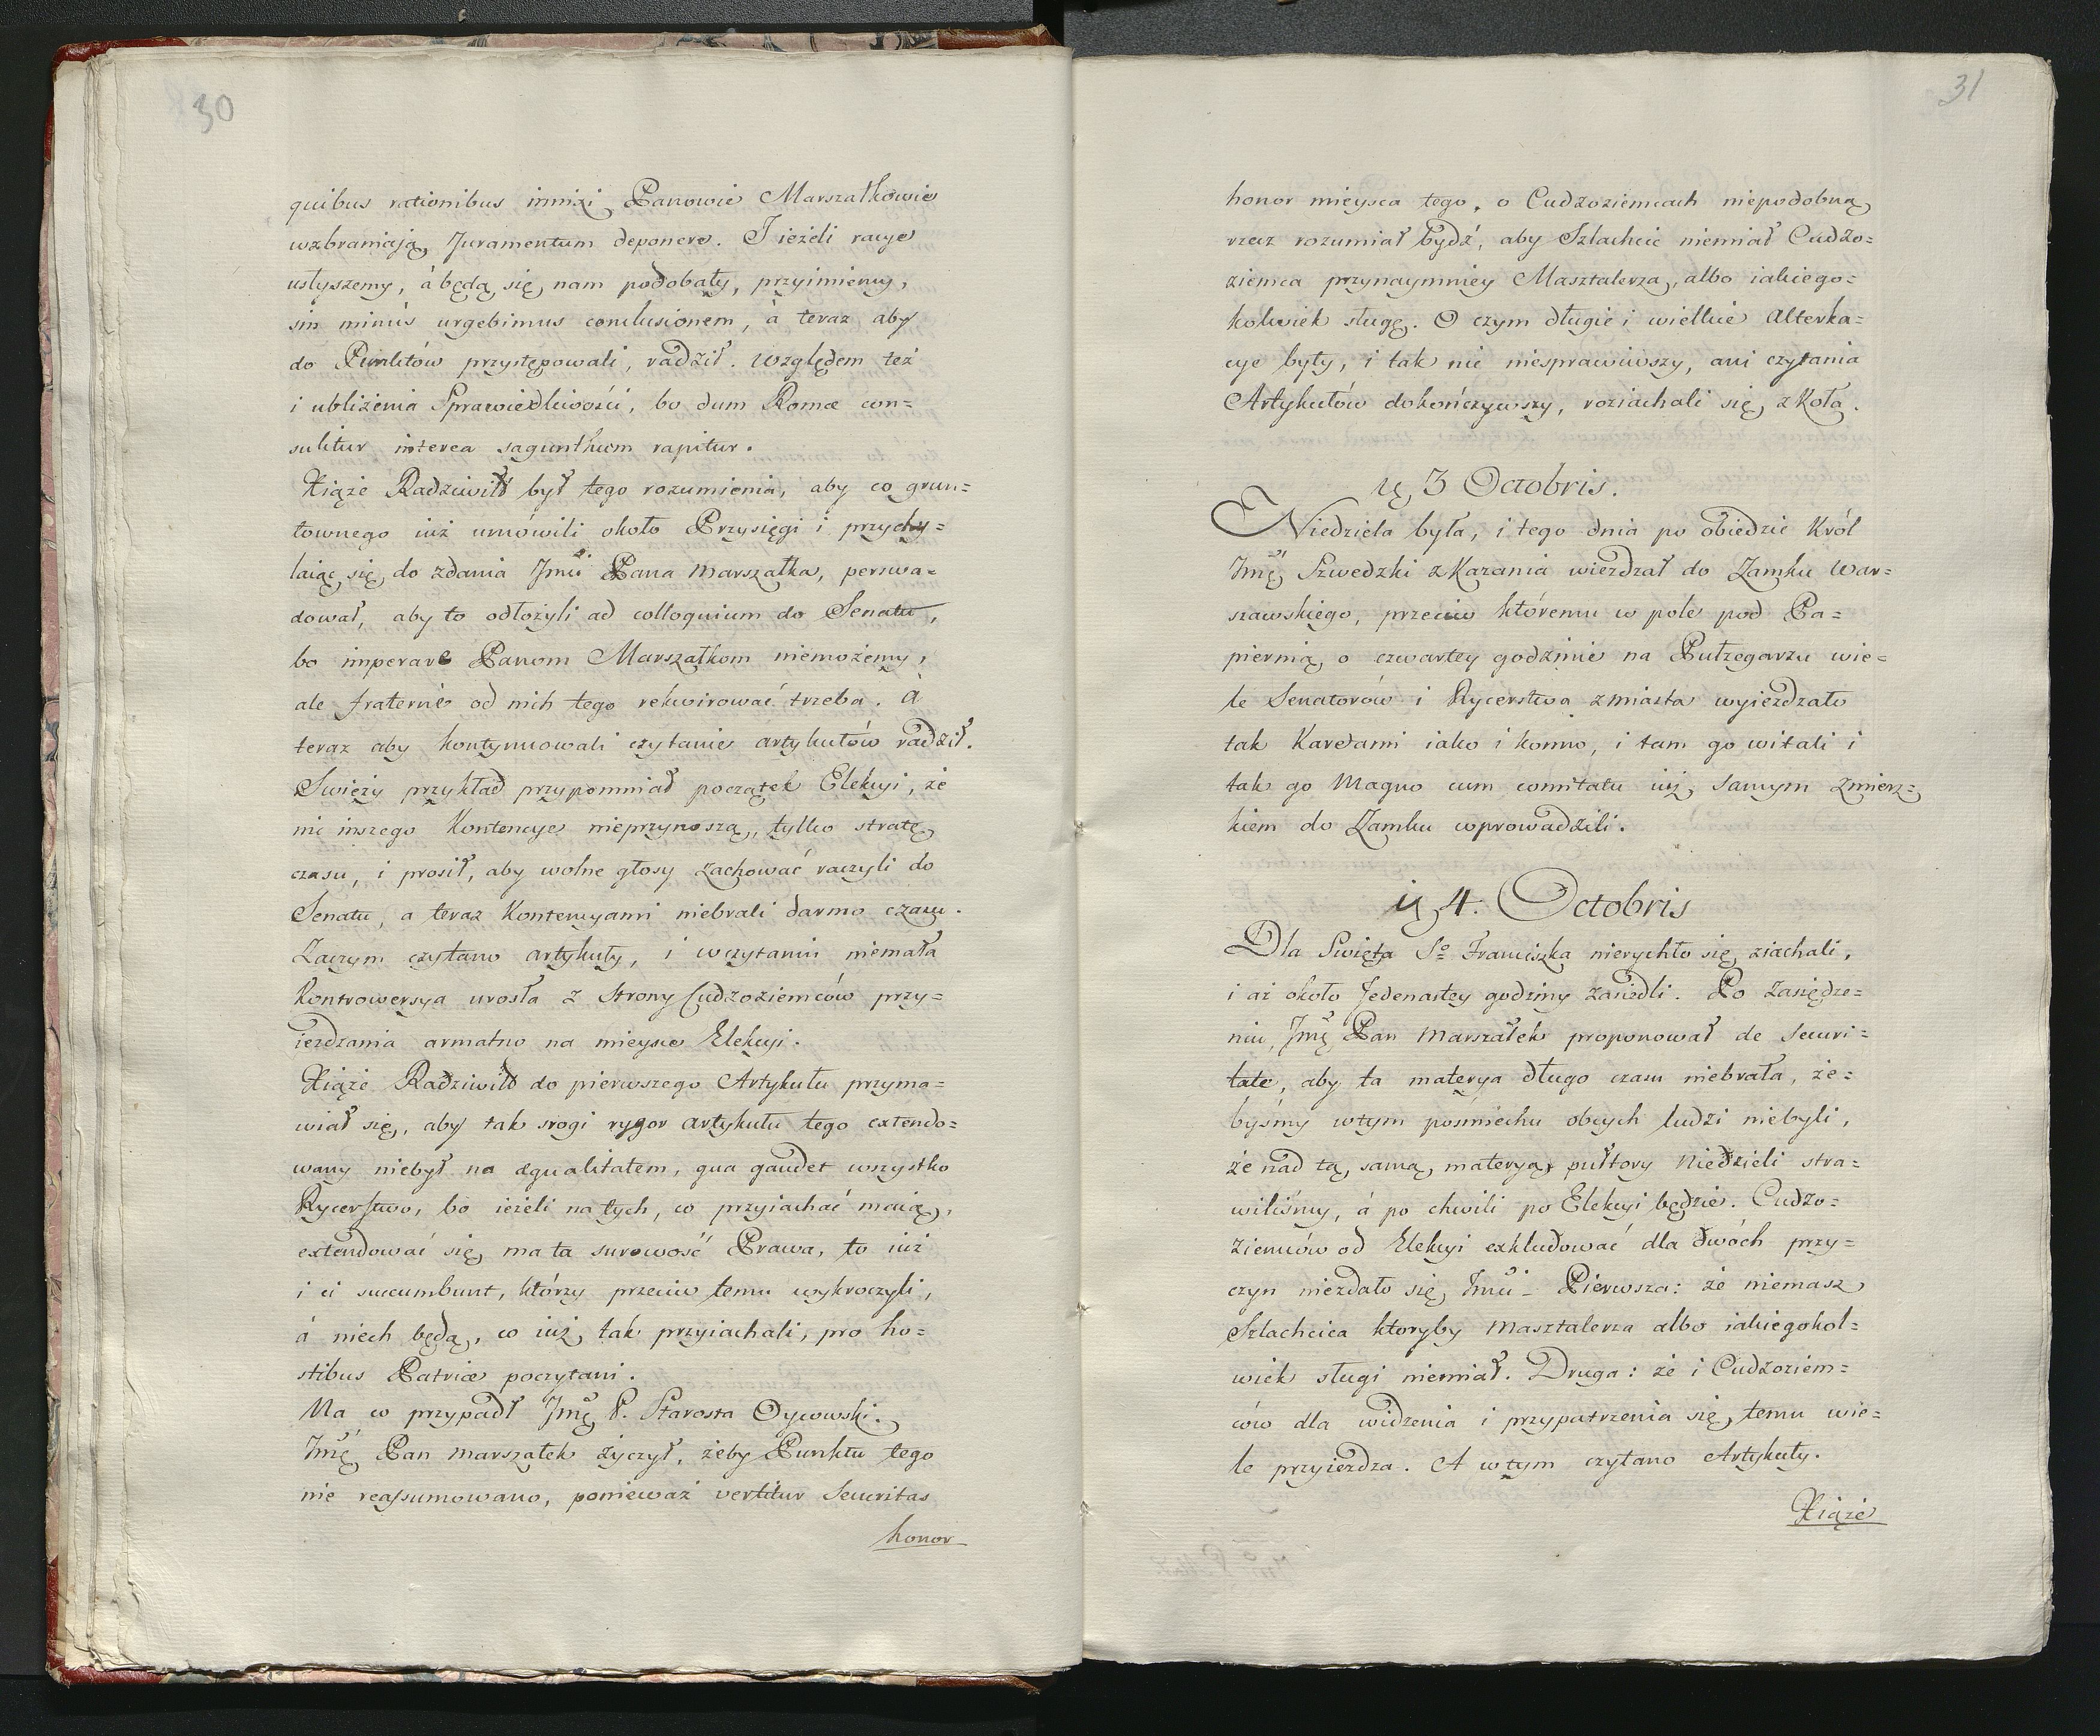 30
quibus rationibus innixi Panowie Marszałkowie
wzbraniają Juramentum deponere. I ieżeli racye
usłyszemy, á będą się nam podobały, przyimiemy,
sin minús urgebimus conclusionem, á teraz aby
do Punktów przystępowali, radził. Względem też
i ubliżenia Sprawiedliwości, bo dum Romæ con=
sulitur interea sagunthum rapitur.
Xiąże Radziwiłł był tego rozumienia, aby co grun=
townego iuż umówili około Przysięgi i przychy=
laiąc się do zdania Jmći Pana Marszałka, perswa=
dował, aby to odłożyli ad colloquium do Senatu,
bo imperare Panom Marszałkom niemożemy,
ale fraternè od nich tego rekwirować trzeba. á
teraz aby kontynuowali czytanie artykułów radził.
Swieży przykład przypomniał początek Elekcyi, że
nic inszego Kontencye nieprzynoszą, tylko stratę
czasu, i prosił, aby wolne głosy zachować raczyli do
Senatu, a teraz Kontencyami niebrali darmo czasu.
Zaczym czytano artykuły, i wczytaniu niemała
Kontrowersya urosła z Strony Cudzoziemców przy=
ieżdzania armatno na mieysce Elekcyi.
Xiąże Radziwiłł do pierwszego Artykułu przyma=
wiał się, aby tak srogi rygor artykułu tego extendo=
wany niebył na æqualitatem, qua gaudet wszystko
Rycerstwo, bo ieżeli na tych, co przyiachać maią,
extendować się ma ta surowość Prawa, to iuż
i ci succumbunt, którzy przeciw temu wykroczyli,
á niech będą, co iuż tak przyiachali, pro ho=
stibus Patriæ poczytani.
Na co przypadł Jmć P. Starosta Oycowski.
Jmć Pan Marszałek życzył, żeby Punktu tego
nie reassumowano, ponieważ vertitur Securitas
honor
31
honor mieysca tego, o Cudzoziemcach niepodobną
rzecz rozumiał bydź, aby Szlachcic niemiał Cudzo=
ziemca przynaymniey Masztalerza, albo iakiego=
kolwiek sługę. O czym długie i wielkie Alterka=
cye były, i tak nic niesprawiwszy, ani czytania
Artykułów dokończywszy, roziachali się z Koła.
3 Octobris.
Niedziela była, i tego dnia po obiedzie Król
Jmć Szwedzki z Kazania wieżdzał do Zamku War=
szawskiego, przeciw któremu w pole pod Pa=
piernią o czwartey godzinie na Pułzegarzu wie=
le Senatorów i Rycerstwa z miasta wyieżdzało
tak Karetami iako i konno, i tam go witali i
tak go Magno cum comitatu iuż samym zmierz=
kiem do Zamku wprowadzili.
4. Octobris
Dla Swięta So Franciszka nierychło się ziachali,
i aż około Jedenastey godziny zasiedli. Po zasiędze=
niu, Jmć Pan Marszałek proponował de Securi=
tate, aby ta materya długo czasu niebrała, że=
byśmy wtym pośmiechu obcych ludzi niebyli,
że nad tą samą materyą pułtory Niedzieli stra=
wiliśmy, á po chwili po Elekcyi będzie. Cudzo=
ziemców od Elekcyi exkludować dla dwóch przy=
czyn niezdało się Jmći. Pierwsza: że niemasz
Szlachcica ktoryby Masztalerza albo iakiegokol=
wiek sługi niemiał. Druga: że i Cudzoziem=
ców dla widzenia i przypatrzenia się temu wie=
le przyieżdza. A wtym czytano Artykuły.
Xiąże